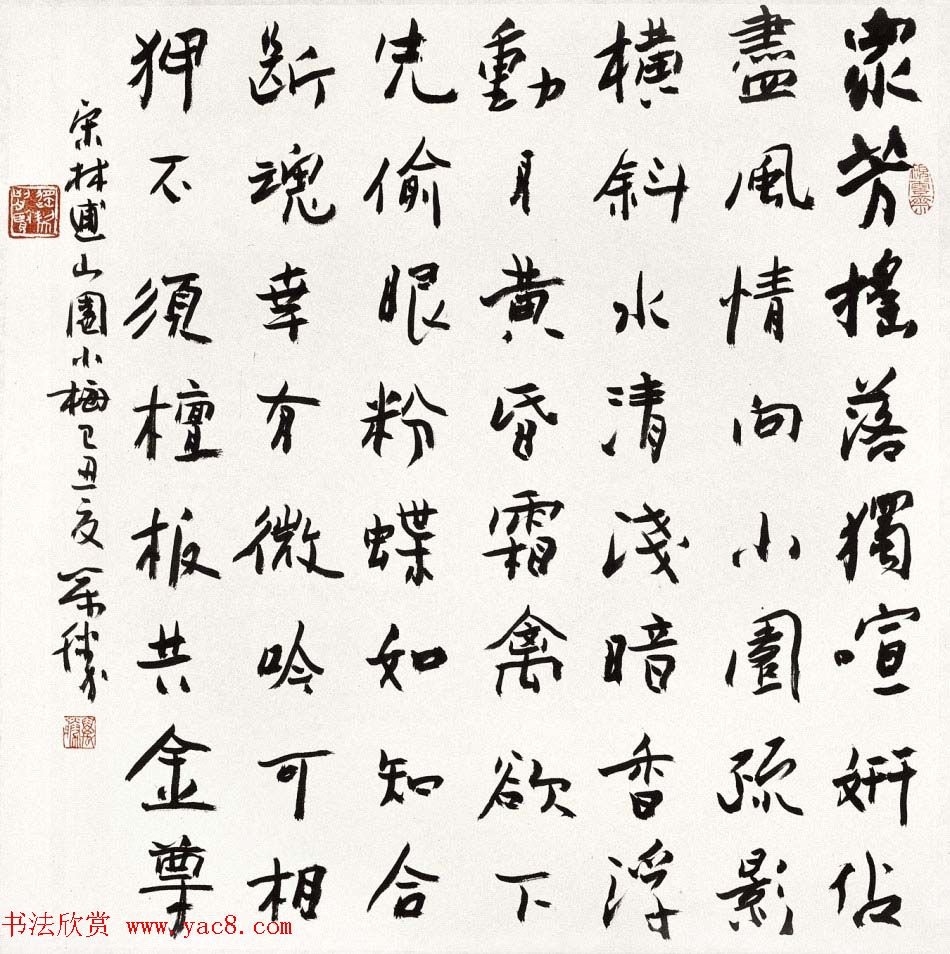 眾芳搖落獨喧妍佔
盡風情向小園疏影
橫斜水清淺暗香浮
動月黃昏霜禽欲下
先偷眼粉蝶如知合
斷魂幸有微吟可相
狎不須檀板共金尊
宋林逋山園小梅己丑夏
书法欣赏 www.yac8.com